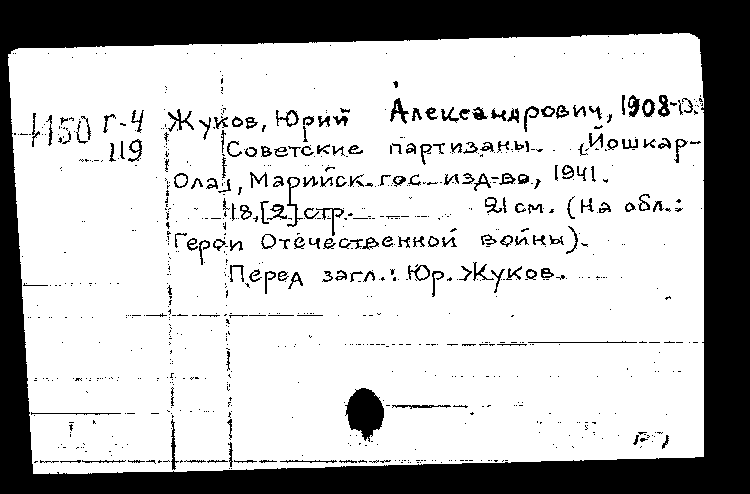 1150 Г-4 Жуков, Юрий Александрович, 1908-
119 Советские партизаны. [Йошкар-
Ола], Марийск. гос. изд-во, 1941.
18,[2]стр. 21 см. (На обл.:
Герои Отечественной войны).
Перед загл.: Юр. Жуков.